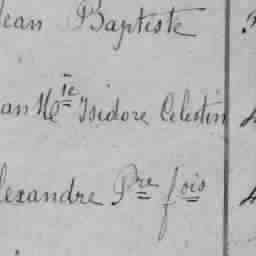 Jean Baptiste
Jean Mie Isidore Celestin
Alexandre Pre fois